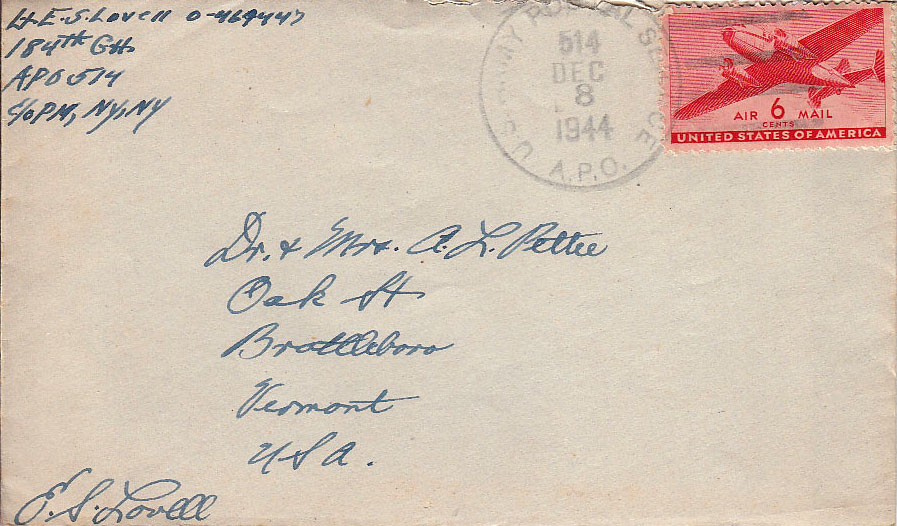 Lt. E. S. Lovell O-469447
184th GH
APO 514
c/o PM, NY, NY
U.S. ARMY POSTAL SERVICE
514
DEC
8
1944
A.P.O.
AIR 6 MAIL
CENTS
UNITED STATES OF AMERICA
Dr. & Mrs. A. L. Pettee
Oak St
Brattleboro
Vermont
USA.
E. S. Lovell